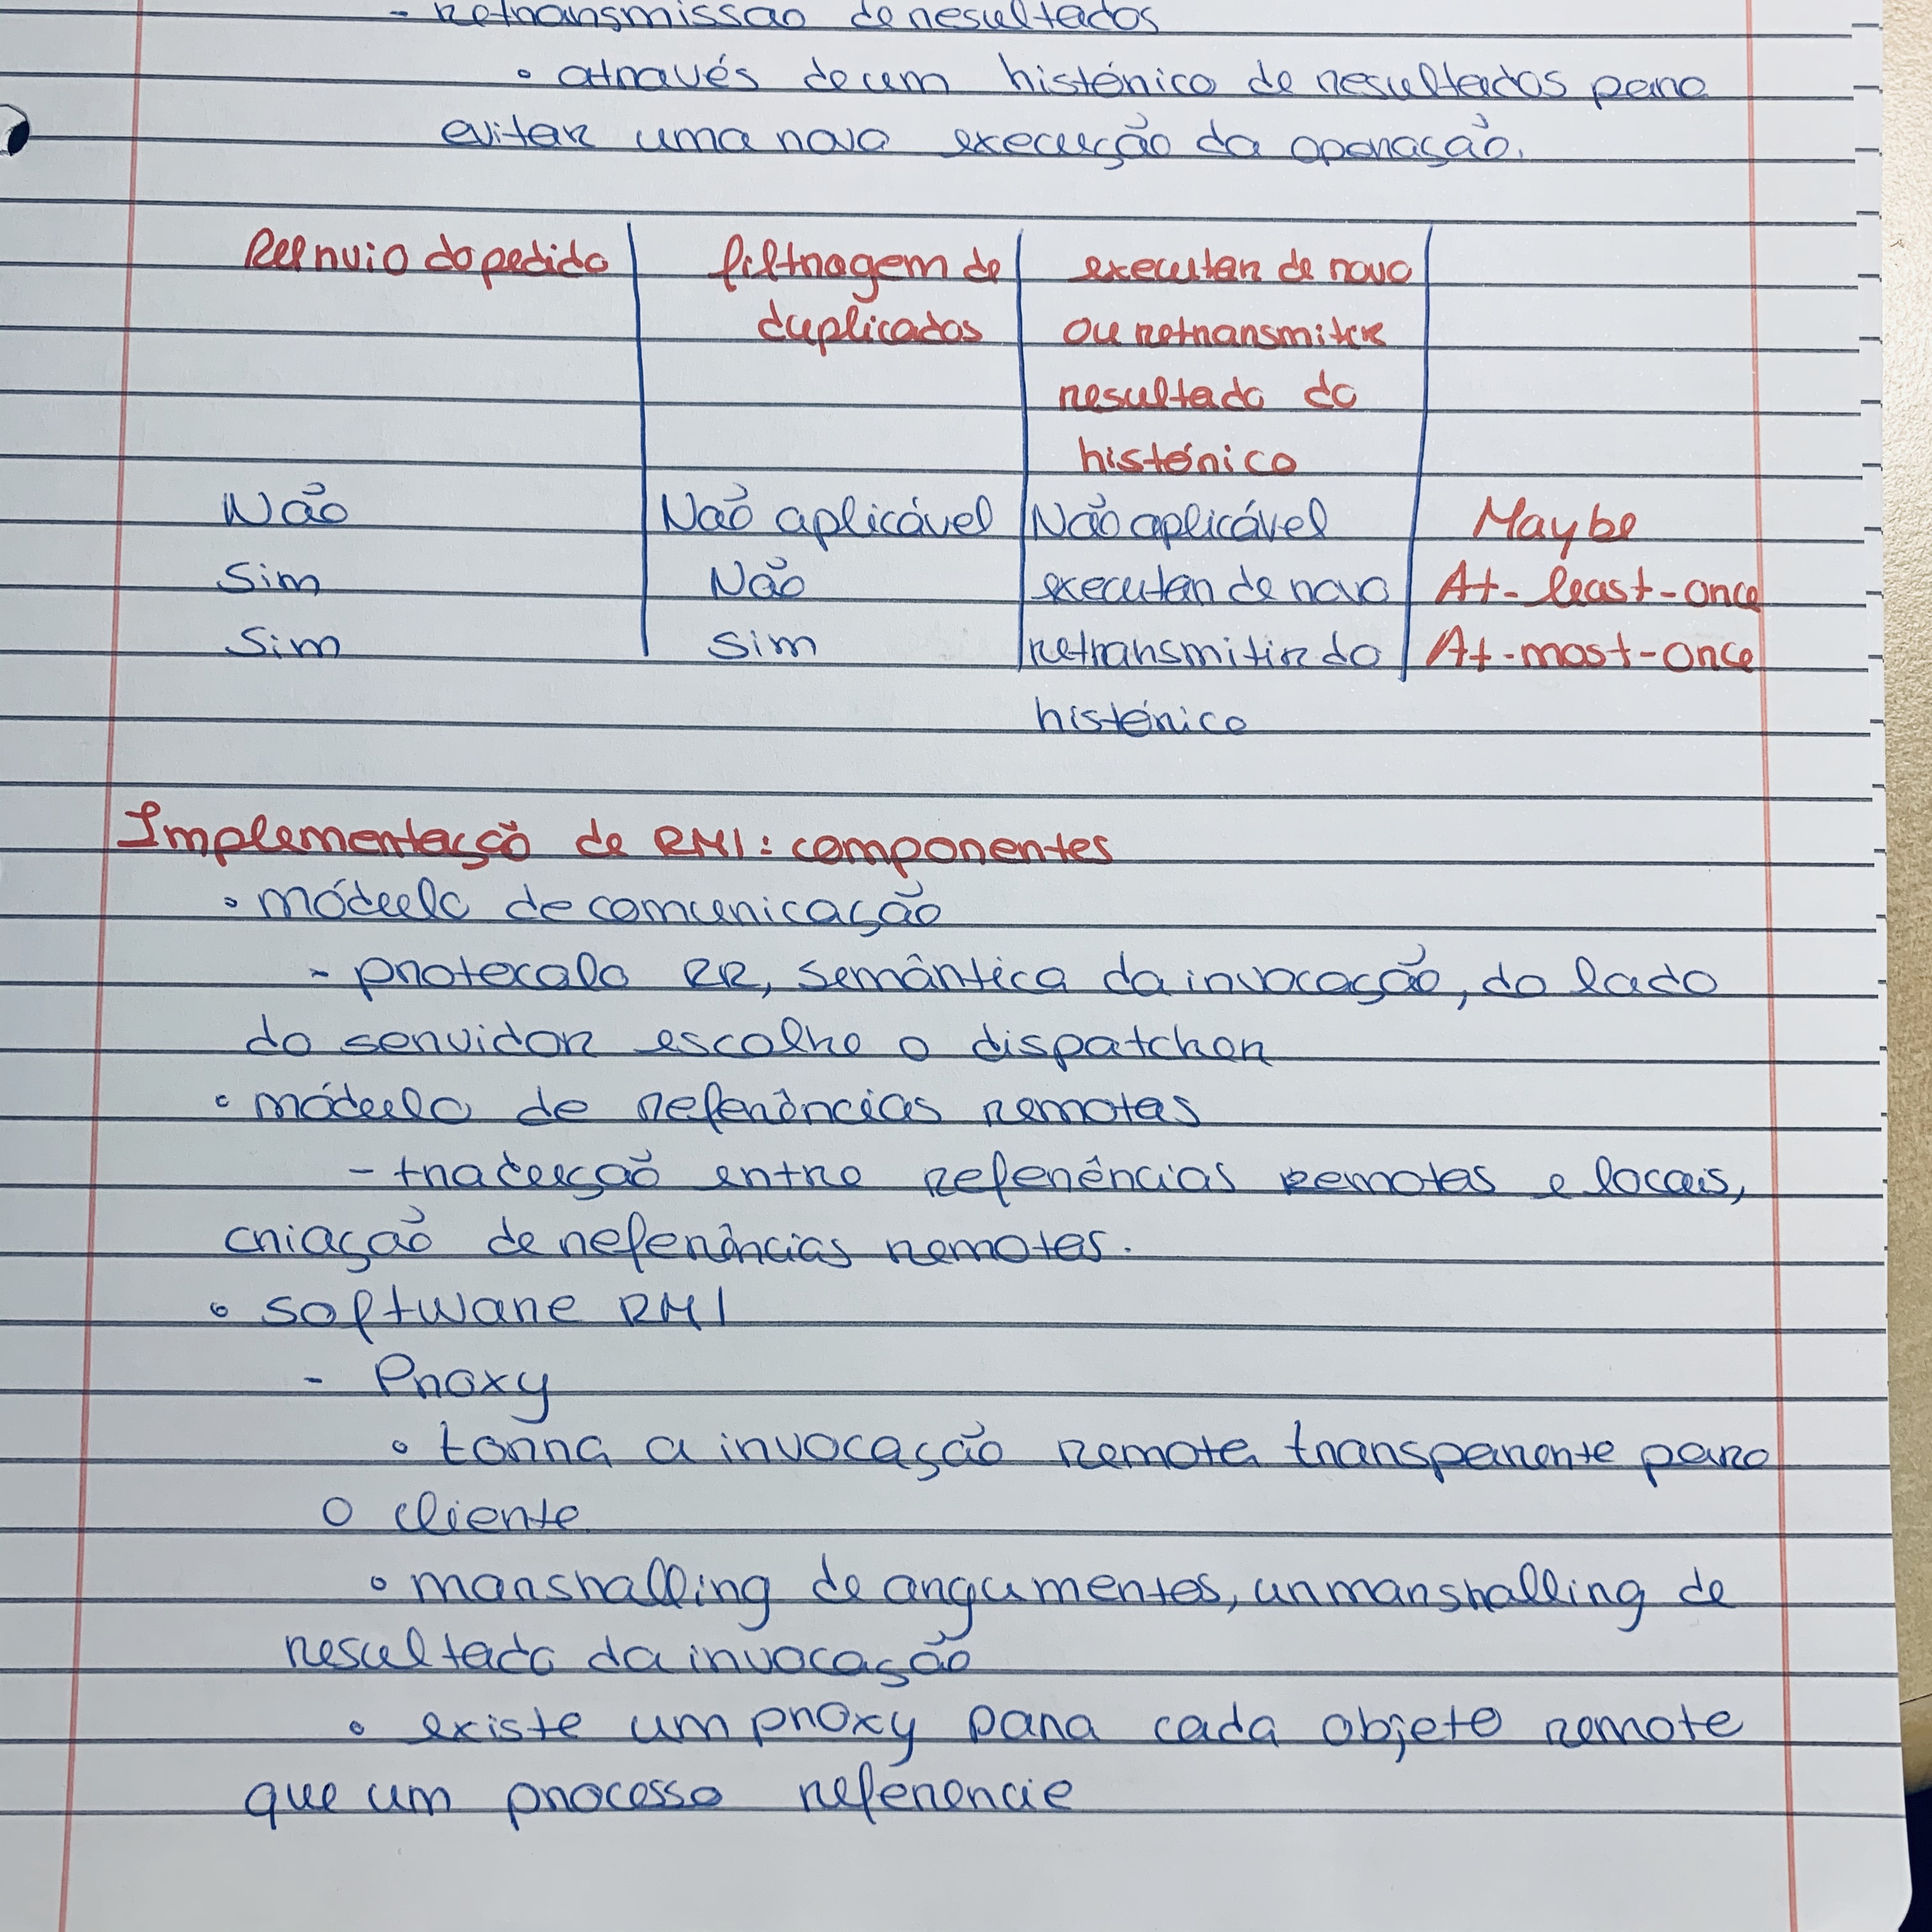 - retransmissão de resultados
• através de um histórico de resultados para
evitar uma nova execução da operação.
Reenvio do pedido | filtragem de | executar de novo
duplicados | ou retransmitir
resultado do
histórico
Não | Não aplicável | Não aplicável | Maybe
Sim | Não | executar de novo | At-least-once
Sim | Sim | retransmitir do | At-most-once
histórico
Implementação de RMI: componentes
• módulo de comunicação
- protocolo RR, semântica da invocação, do lado
do servidor escolhe o dispatcher
• módulo de referências remotas
- tradução entre referências remotas e locais,
criação de referências remotas.
• software RMI
- Proxy
• torna a invocação remota transparente para
o cliente
• marshalling de argumentos, unmarshalling de
resultado da invocação
• existe um proxy para cada objeto remote
que um processo referencie